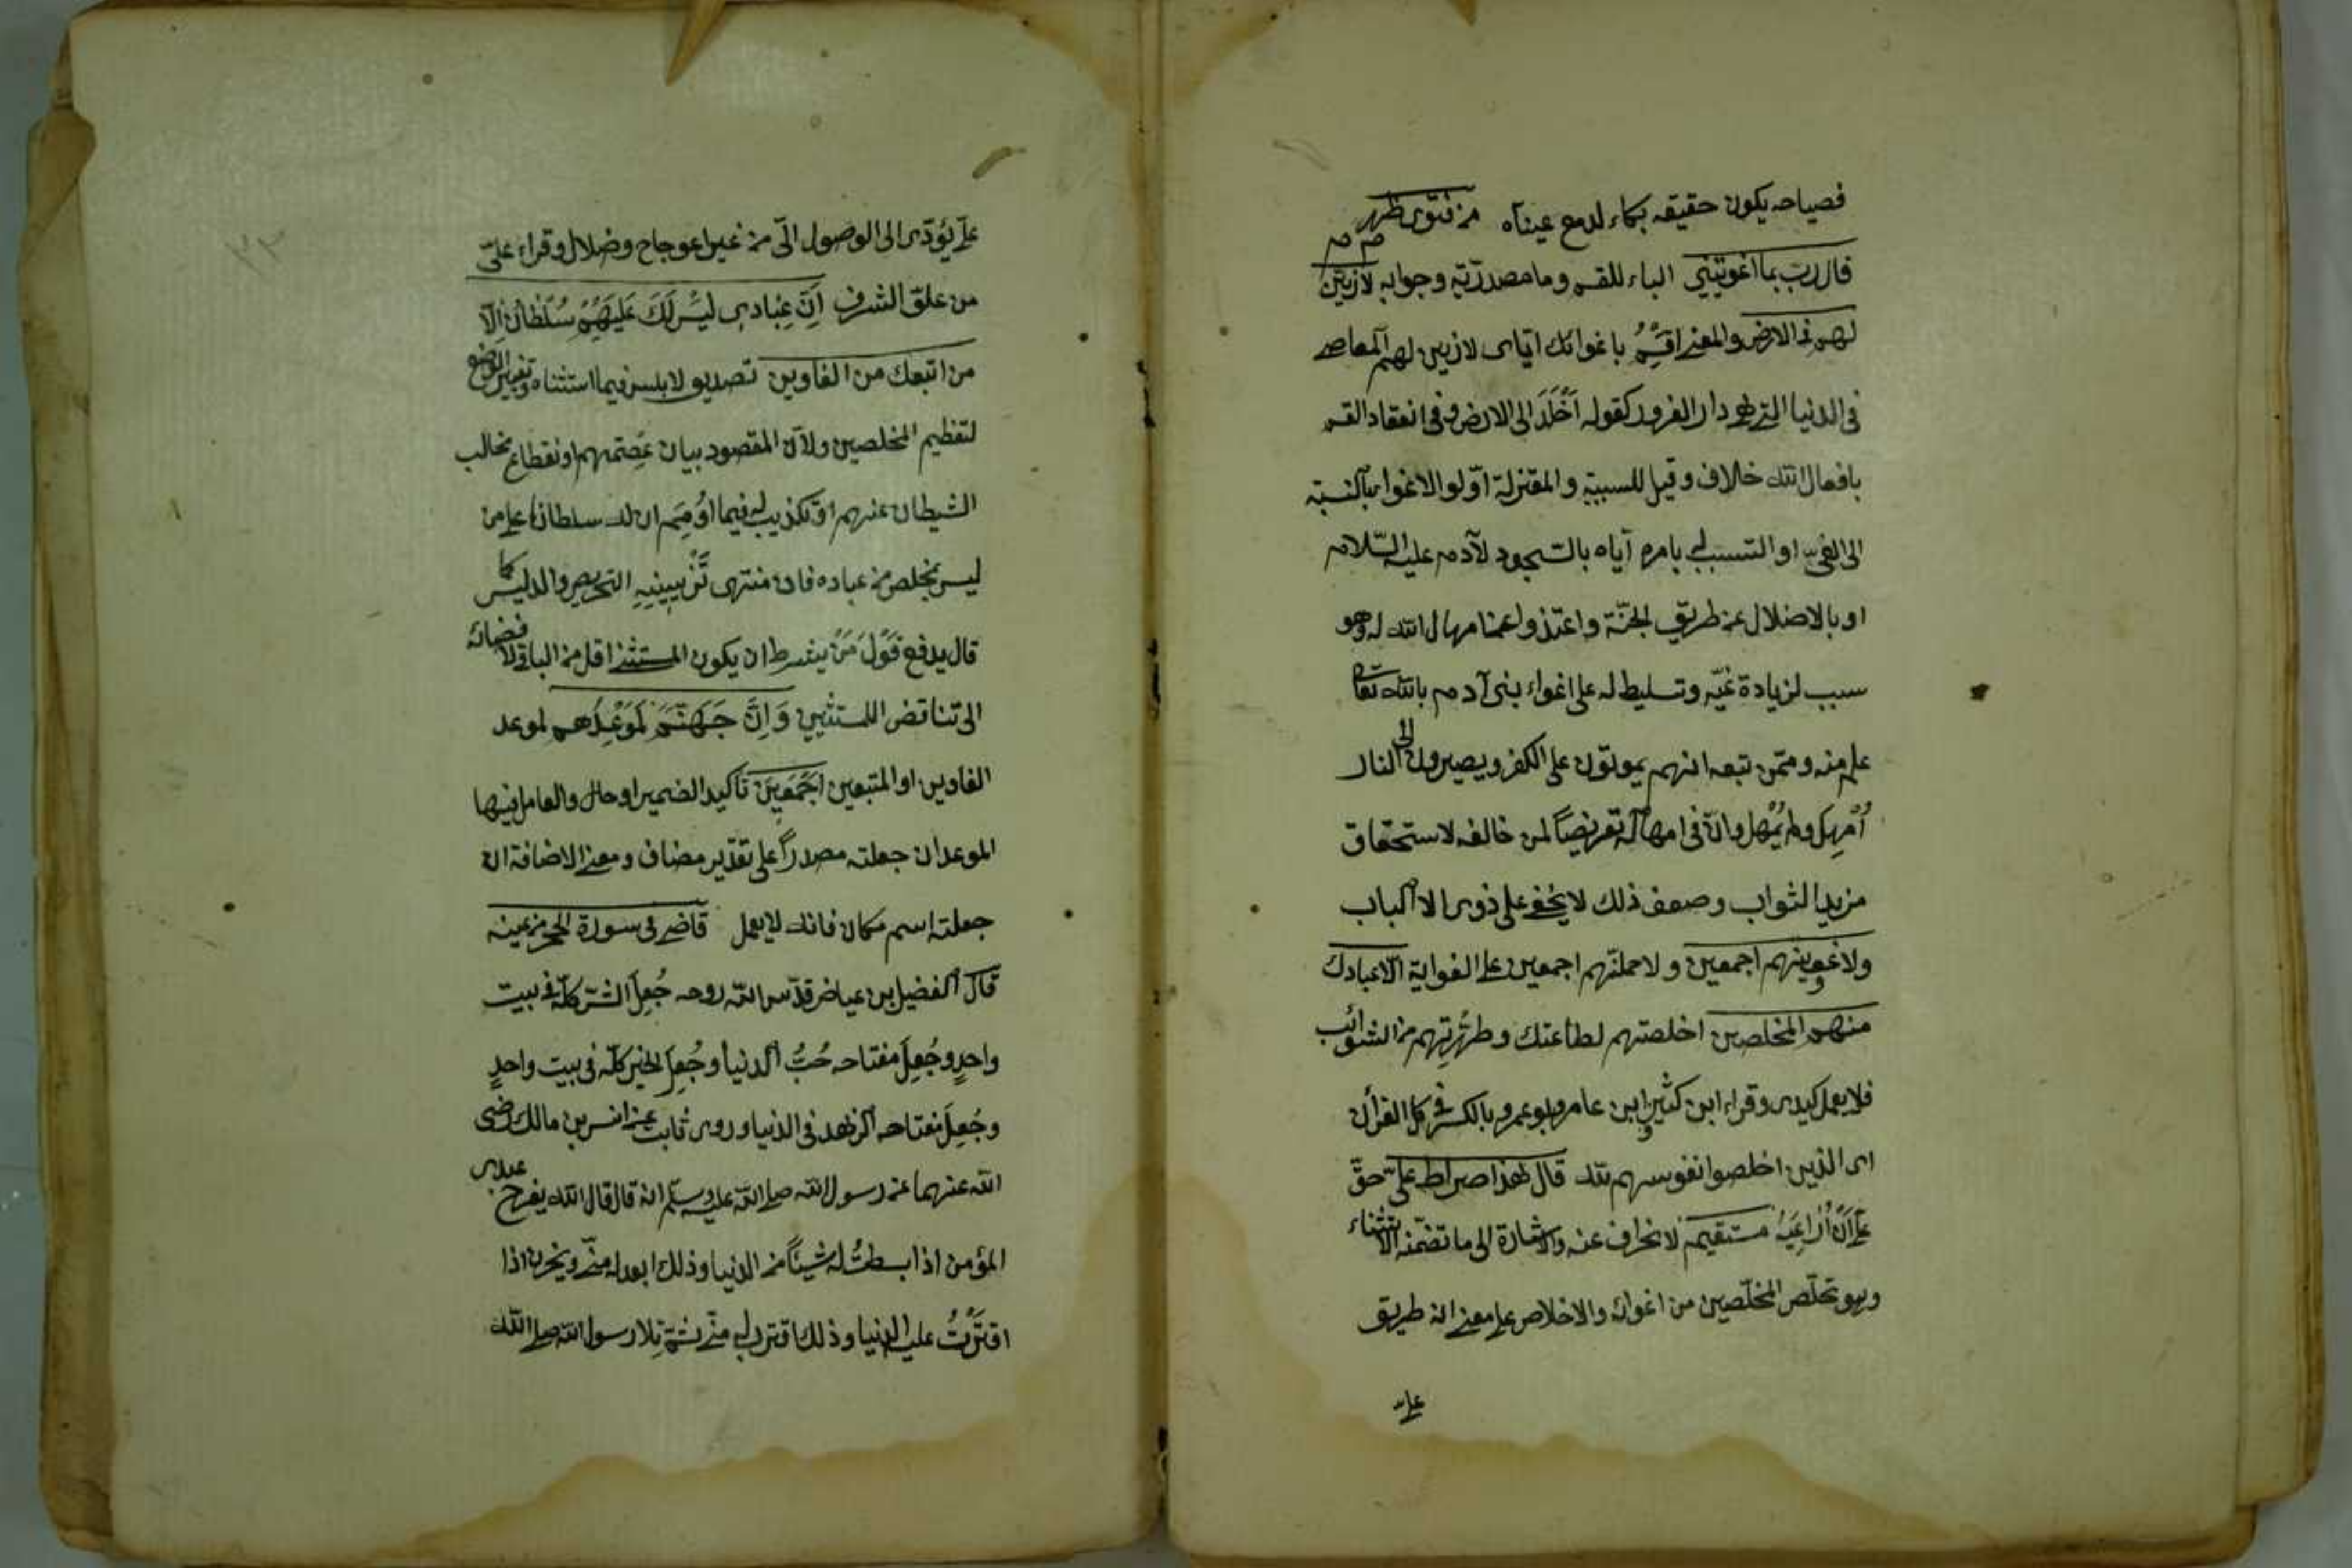 فصياحه يكون حقيقه بكاء لدمع عيناه من فتوى ظهر
قال رب بما اغويتني الباء للقسم وما مصدريّة وجوابه لازينن
لهم في الارض والمعنى اقسم باغوائك اياى لازينن لهم المعاصى
في الدنيا التى هى دار الغرور كقوله اَخْلَدَ الى الارض وفى انعقاد القسم
بافعال الله خلاف وقيل للسببيّة والمعتزلة اوّلوا الاغواء بالنسبة
الى الغى او التسبب له بامره اياه بالسّجود لآدم عليه السّلام
او بالاضلال عن طريق الجنّة واعتذروا عن امهال الله له وهو
سبب لزيادة غيّه وتسليط له على اغواء بنى آدم بان الله تعالى
علم منه وممّن تبعه انهم يموتون على الكفر ويصيرون الى النار
اُمْهِل ولم يُمْهل وانّ في امهاله تعريضاً لمن خالفه لاستحقاق
مزيد الثواب وضعف ذلك لا يخفى على ذوى الالباب
ولاغوينهم اجمعين ولاحملنّهم اجمعين على الغواية الّا عبادك
منهم المخلصين اخلصتهم لطاعتك وطهّرتهم من الشوائب
فلا يعمل كيدى وقراء ابن كثير وابن عامر وابو عمرو بالكسر في كل القرآن
اى الذين اخلصوا نفوسهم لله قال هذا صراط علىّ حقّ
علىّ اَنْ اُراعِيَهُ مستقيم لا انحراف عنه والاشارة الى ما تضمّنه الاستثناء
وهو تخلّص المخلصين من اغوائه والاخلاص على معنى انه طريق
علىّ
علىّ يؤدّى الى الوصول الىّ من غير اعوجاج وضلال وقراء علىّ
من علوّ الشرف اِنَّ عِبادى لَيْسَ لَكَ عَلَيْهِمْ سُلْطانٌ اِلّا
من اتبعك من الغاوين تصديق لابليس فيما استثناه وتغيير الوضع
لتعظيم المخلصين ولانّ المقصود بيان عصمتهم وانقطاع مخالب
الشيطان عنهم او تكذيب له فيما اوهم ان له سلطاناً على من
ليس بمخلص من عباده فان منتهى تزيينه التحريص والتدليس كما
قال يدفع قَوْلَ مَنْ يشترط ان يكون المستثنى اقل من الباقى لافضائه
الى تناقض المستثنيين وَاِنَّ جَهَنَّمَ لَمَوْعِدُهم لموعد
الغاوين او المتبعين اجمعين تأكيد الضمير او حال والعامل فيها
الموعد ان جعلته مصدراً على تقدير مضاف ومعنى الاضافة ان
جعلته اسم مكان فانه لا يعمل قاضى في سورة الحجر من عينه
قال الفضيل بن عياض قدّس الله روحه جُعِلَ الشّر كلّه في بيت
واحدٍ وجُعِلَ مفتاحه حُبُّ الدنيا وجُعِلَ الخير كلّه في بيت واحدٍ
وجُعِلَ مفتاحه الزهد في الدنيا وروى ثابت عن انس بن مالك رضى
الله عنهما عن رسول الله صلى الله عليه وسلّم انه قال قال الله يفرح عبدى
المؤمن اذا بسطتُ له شيئاً من الدنيا وذلك ابعد له منّى ويحزن اذا
اقترْتُ عليه الدنيا وذلك اقرب له منّى ثمّ تلا رسول الله صلى الله